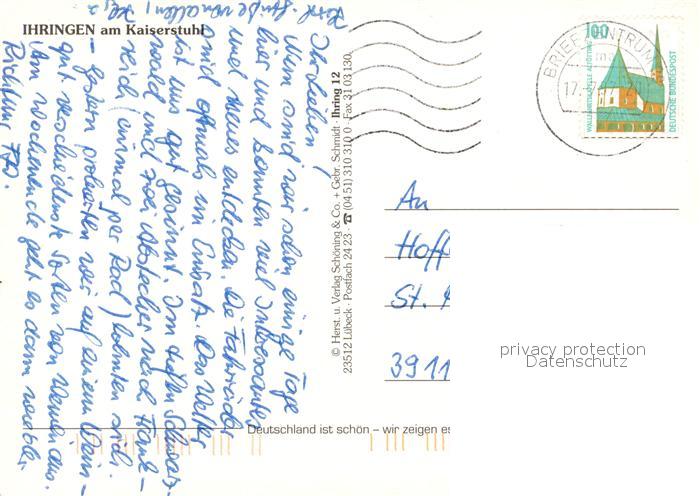 IHRINGEN am Kaiserstuhl
Ihr Lieben!
Nun sind wir schon einige Tage
hier und konnten viel Interessantes
und Neues entdecken. Die Fahrräder
sind oftmals im Einsatz. Das Wetter
ist uns gut gesinnt. Im tiefen Schwarz-
wald und zwei Abstecher nach Frank-
reich (einmal per Rad) lohnten sich.
Gestern probierten wir auf einem Wein-
gut verschiedenste Sorten von Weinen aus.
Am Wochenende geht es dann weiter
Richtung
Herzl. Grüße von allen,
© Herst. u. Verlag Schöning & Co. + Gebr. Schmidt · Ihring 12
23512 Lübeck · Postfach 24 23 · ☎ (04 51) 310 310 0 · Fax 31 03 130
BRIEFZENTRUM
17.
100
WALLFAHRTSKAPELLE ALTÖTTING
DEUTSCHE BUNDESPOST
An
Hoff
St.
3911
privacy protection
Datenschutz
Deutschland ist schön – wir zeigen es